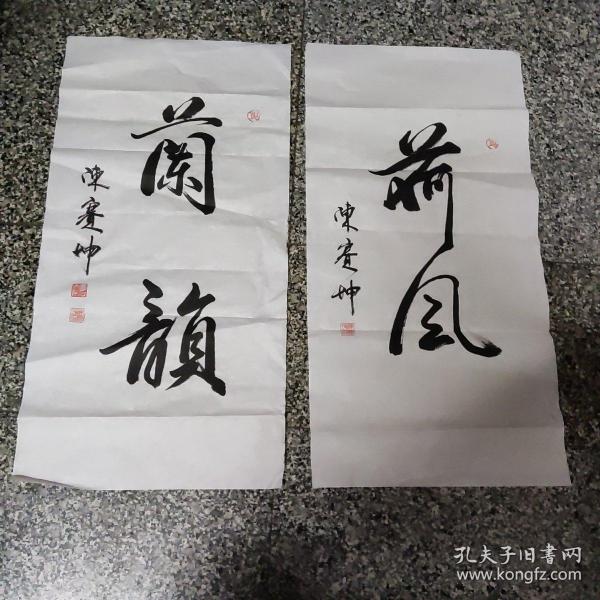 蘭韻
陳賽坤
荷风
陳賽坤
孔夫子旧書网
www.kongfz.com